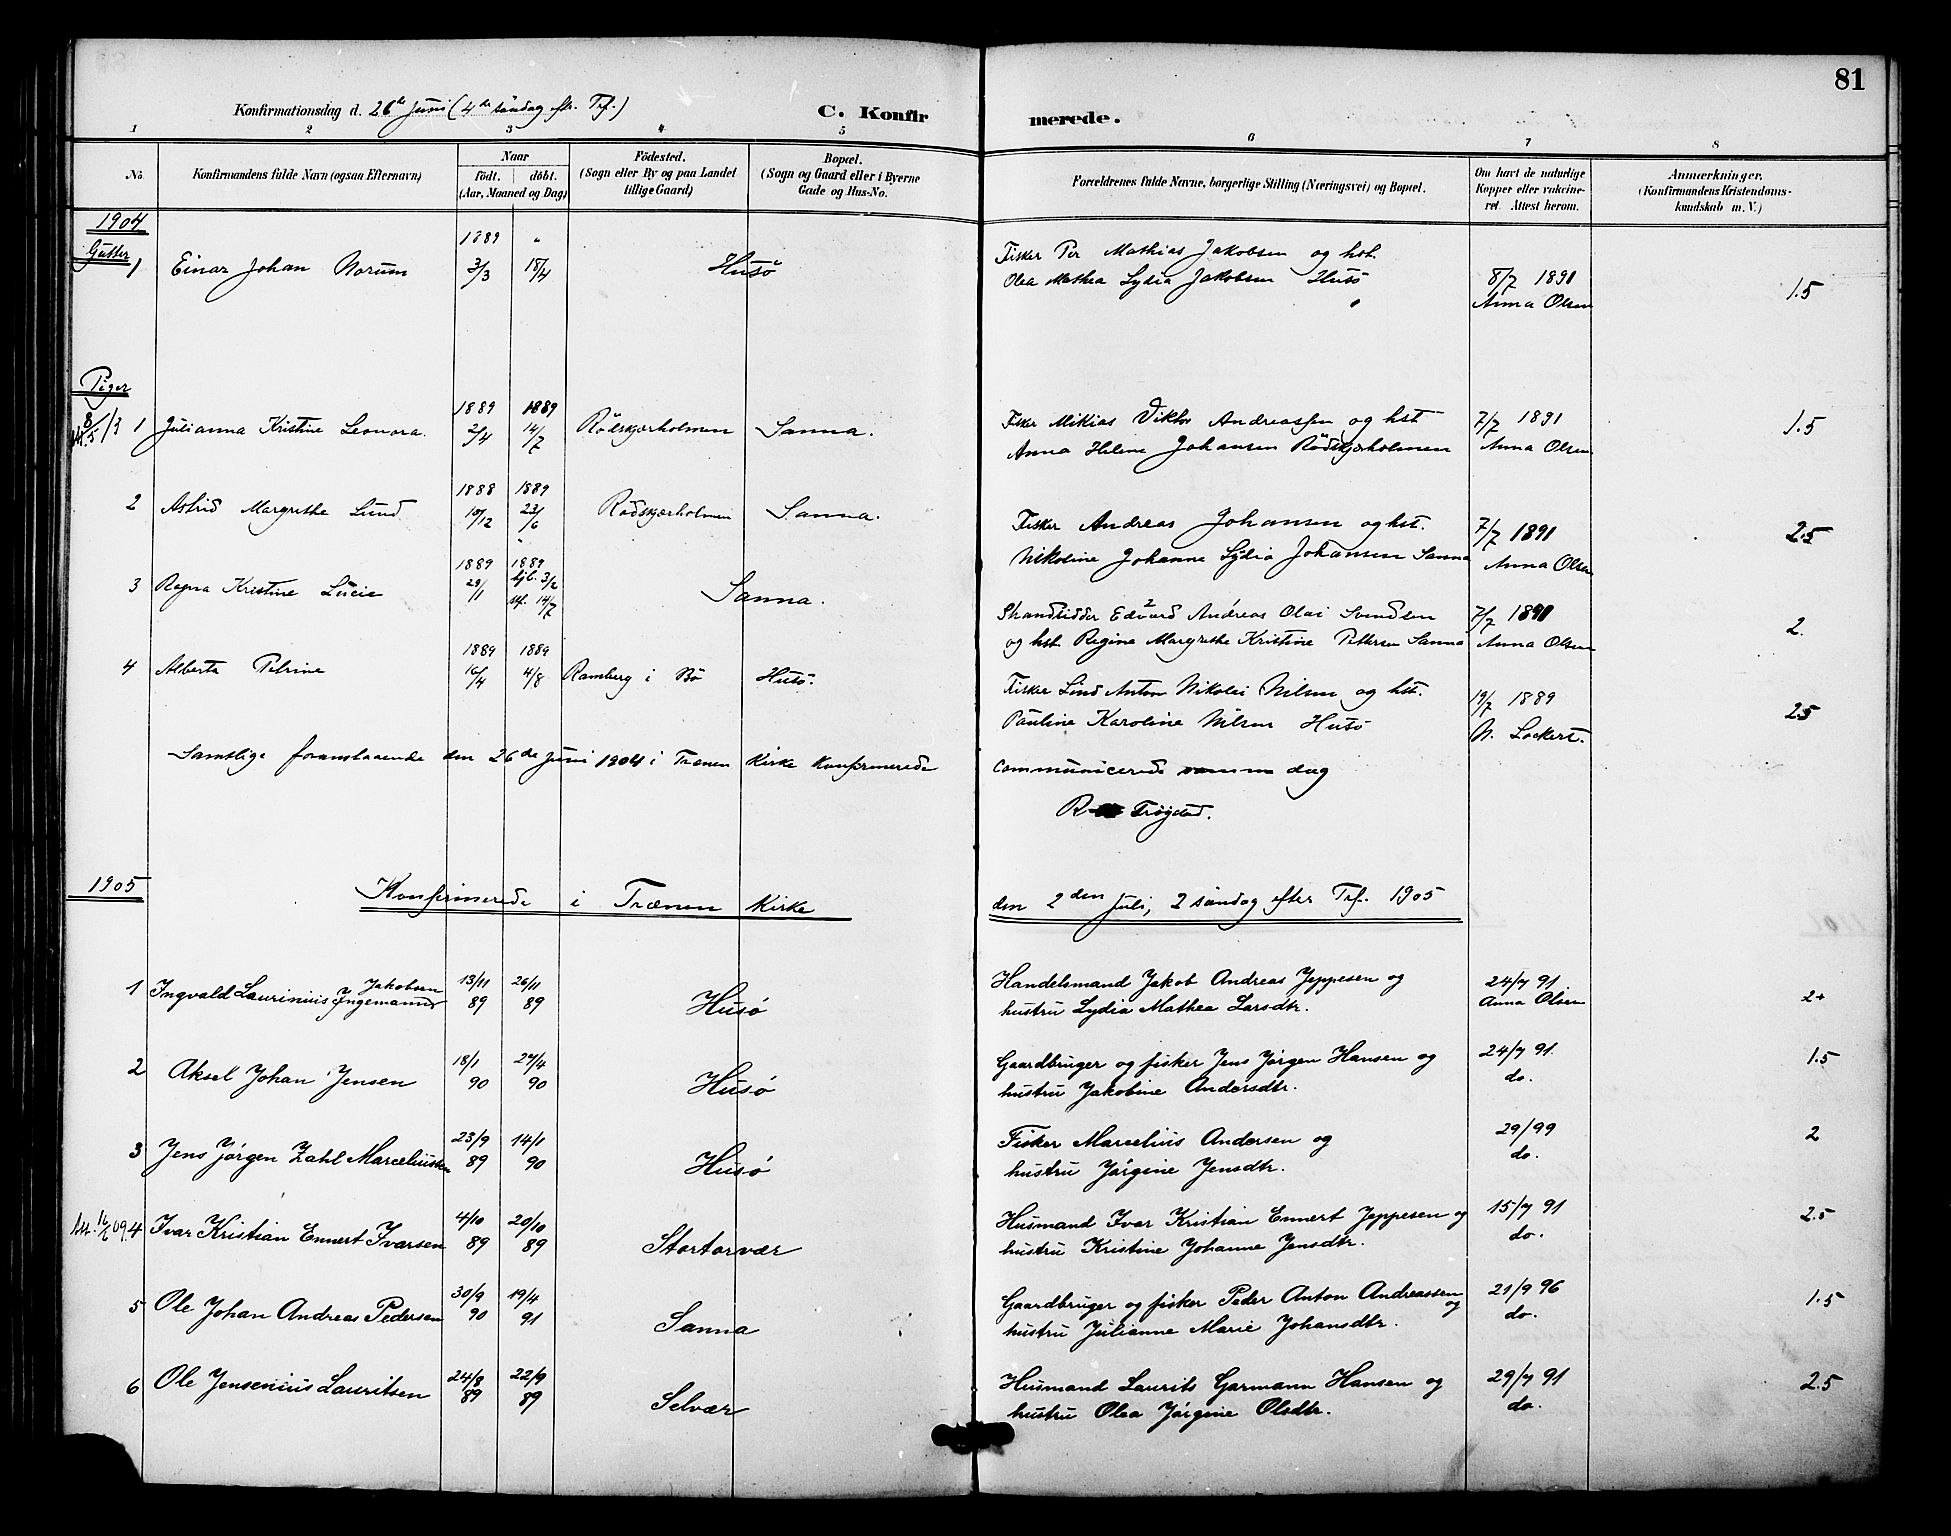 81
Konfirmationsdag d. 26de Juni (4de söndag eft. Trf.)
C. Konfirmerede.
1 2 3 4 5 6 7 8
No
Konfirmandens fulde Navn (ogsaa Efternavn)
Naar
födt. döbt.
(Aar, Maaned og Dag)
Födested.
(Sogn eller By og paa Landet
tillige Gaard)
Bopæl.
(Sogn og Gaard eller i Byerne
Gade og Hus-No.
Forældrenes fulde Navne, borgerlige Stilling (Næringsvei) og Bopæl.
Om havt de naturlige
Kopper eller vakcine-
ret. Attest herom.
Anmærkninger.
(Konfirmandens Kristendoms-
kundskab m. V.)
1904
Gutter
1 Einar Johan Norum 1889 3/3 " 15/4 Husö Fisker Per Mathias Jakobsen og hst.
Olea Mathea Lydia Jakobsen Husö 8/7 1891 Anna Olsen 1.5
Piger
1 Julianna Kristine Leonora. 1889 2/4 1889 14/7 Rödskjærholmen Sanna. Fisker Mikias Viktor Andreassen og hst
Anna Helene Johansen Rödskjærholmen 7/7 1891 Anna Olsen 1.5
2 Astrid Margrethe Lund 1888 10/12 1889 23/6 Rödskjærholmen Sanna. Fisker Andreas Johansen og hst.
Nikoline Johanne Lydia Johansen Sanna 7/7 1891 Anna Olsen 2.5
3 Ragna Kristine Lucie 1889 29/1 1889 hjl. 3/2 stf. 14/7 Sanna. Strandsidder Edvard Andreas Olai Svendsen
og hst. Regine Margrethe Kristine Pettersen Sanna 7/7 1891 Anna Olsen 2.
4 Alberta Petrine 1889 16/4 1889 4/8 Ramberg i Bö Husö. Fisker Lind Anton Nikolei Nilsen og hst.
Pauline Karoline Nilsen Husö 19/7 1889 N. Lockert. 2.5
Samtlige foranstaaende den 26de Juni 1904 i Trænen Kirke konfirmerede communicerede samme dag
R Trøgstad.
1905
Konfirmerede i Trænen Kirke den 2den Juli, 2 söndag efter Trf. 1905
1 Ingvald Laurinius Ingemann Jakobsen 13/11 89 26/11 89 Husö Handelsmand Jakob Andreas Jeppesen og
hustru Lydia Mathea Larsdtr. 24/7 91 Anna Olsen 2+
2 Aksel Johan Jensen 18/1 90 27/4 90 Husö Gaardbruger og fisker Jens Jörgen Hansen og
hustru Jakobine Andersdtr. 24/7 91. do. 1.5
3 Jens Jörgen Zahl Marceliussen 23/9 89 14/1 90 Husö Fisker Marcelius Andersen og
hustru Jörgine Jensdtr. 29/99 do. 2
4 Ivar Kristian Ennert Ivarsen 4/10 89 20/10 89 Stortorvær Husmand Ivar Kristian Ennert Jeppesen og
hustru Kristine Johanne Jensdtr. 15/7 91 do. 2.5
5 Ole Johan Andreas Pedersen 30/9 90 19/4 91 Sanna Gaardbruger og fisker Peder Anton Andreassen og
hustru Julianne Marie Johansdtr. 21/9 96 do. 1.5
6 Ole Jensenius Lauritsen 24/8 89 22/9 89 Selvær Husmand Laurits Garmann Hansen og
hustru Olea Jörgine Olsdtr. 29/7 91 do. 2.5